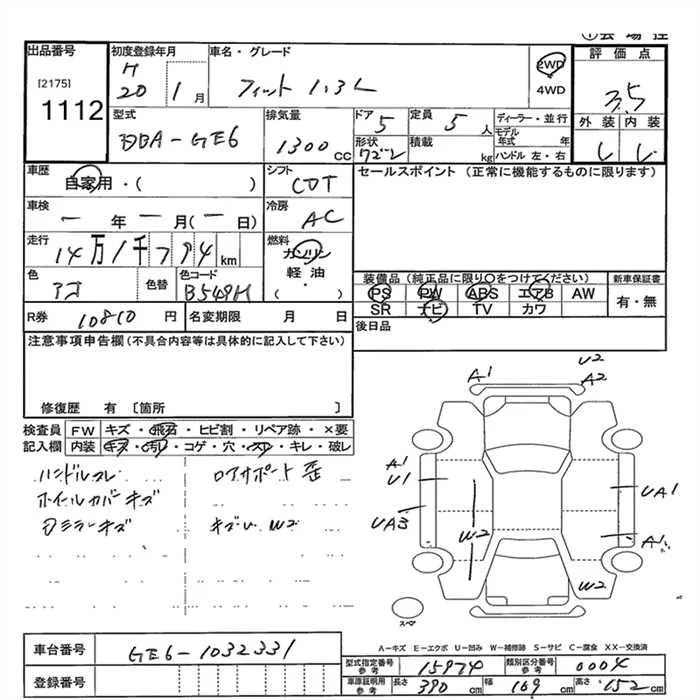 出品番号
[2175]
1112
初度登録年月
H
20 1 月
車名・グレード
フィット 1.3L
2WD
4WD
評価点
3.5
外装 内装
型式
DBA-GE6
排気量
1300 cc
ドア
5
形状
定員
5 人
積載
kg
ディーラー・並行
モデル
年式 年
ハンドル 左・右
車歴
自家用・( )
シフト
CDT
セールスポイント (正常に機能するものに限ります)
車検
一 年 一 月(一 日)
冷房
AC
走行
14万1千794 km
燃料
ガソリン
軽油
( ・ )
色
アヲ
色替
色コード
B548M
装備品 (純正品に限り○をつけてください)
新車保証書
PS PW ABS エアB AW
有・無
SR ナビ TV カワ
R券 10810 円
名変期限 月 日
後日品
注意事項申告欄(不具合内容等は具体的に記入して下さい)
修復歴 有 [箇所 ]
検査員 FW キズ・飛石・ヒビ割・リペア跡・×要
記入欄 内装 キズ・汚れ・コゲ・穴・スレ・キレ・破レ
ハンドルスレ
ロアサポート歪
ホイルカバーキズ
Dミラーキズ
キズU W2
A1
U2
A2
A1
U1
UA3
W2
UA1
A1
W2
スペア
A-キズ E-エクボ U-凹み W-補修跡 S-サビ C-腐食 XX-交換済
車台番号 GE6-1032331
登録番号
型式指定番号
参考
15974
類別区分番号
参考
0004
車庫証明用
参考
長さ 390 cm
幅 169 cm
高さ 152 cm